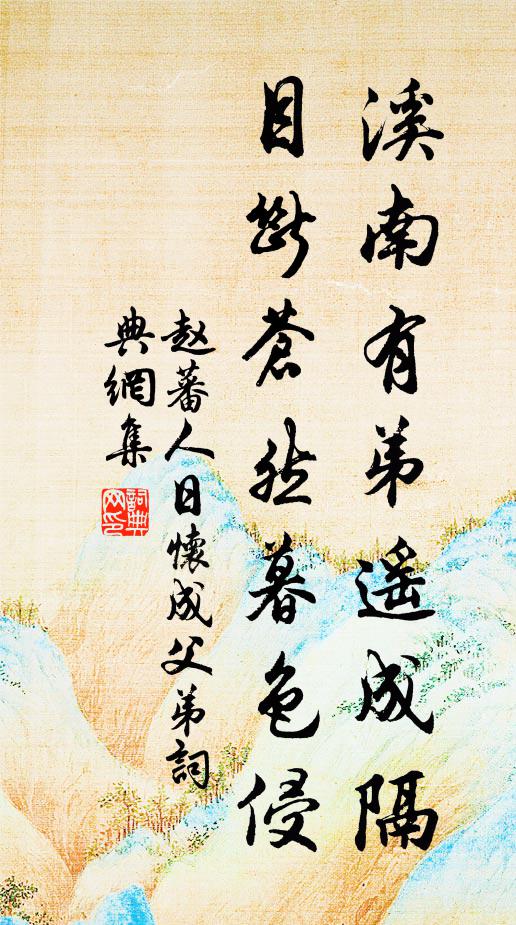 溪南有弟遥成隔
目断苍然暮色侵
赵蕃人日怀成父弟词
典網集
詞典網印